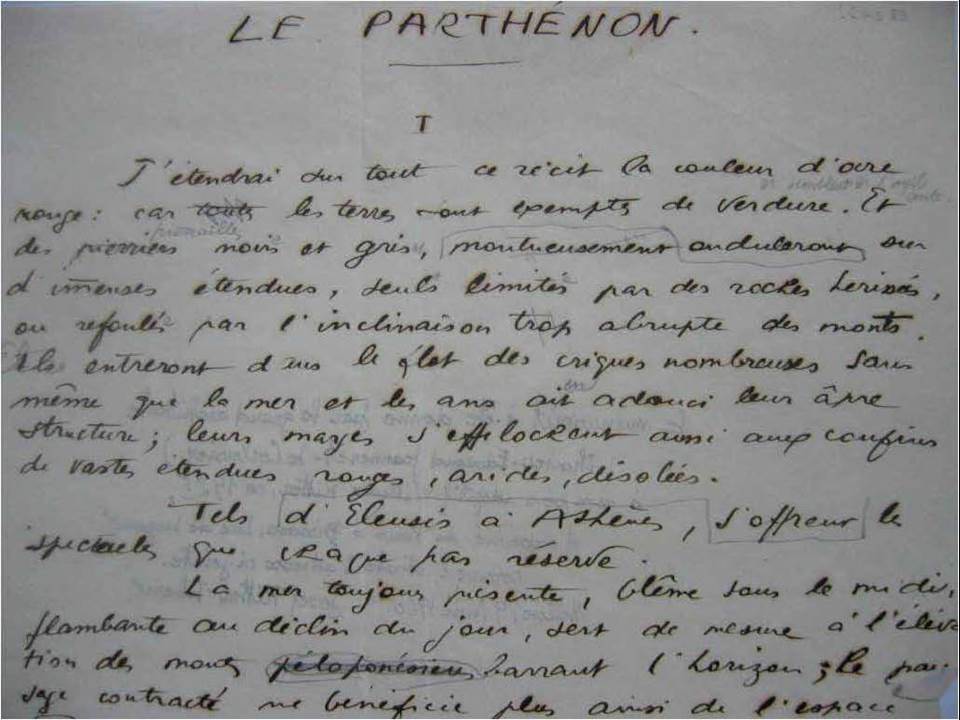 LE PARTHÉNON.
I
J'étendrai sur tout ce récit la couleur d'ocre
rouge : car toutes les terres sont exempts de verdure. Et
pierrailles
des pierriers noirs et gris, montueusement onduleront sur
d'imenses étendues, seuls limités par des roches hérissés,
ou refoulés par l'inclinaison trop abrupte des monts.
Ils entreront dans le flot des criques nombreuses sans
même que la mer et les ans ait adouci leur âpre
structure; leurs mages s'effilockent aussi aux confins
de vastes etendues rouges, arides, désolées.
Tels d'Eleusis à Athènes, s'offrent le
spectacles que chaque pas réserve.
La mer toujours présente, blême sous le midi,
flambante au déclin du jour, sert de mesure à l'éléva
tion des monts péloponésiens barrant l'horizon; Le pay
sage contracté ne bénéficie plus ainsi de l'espace